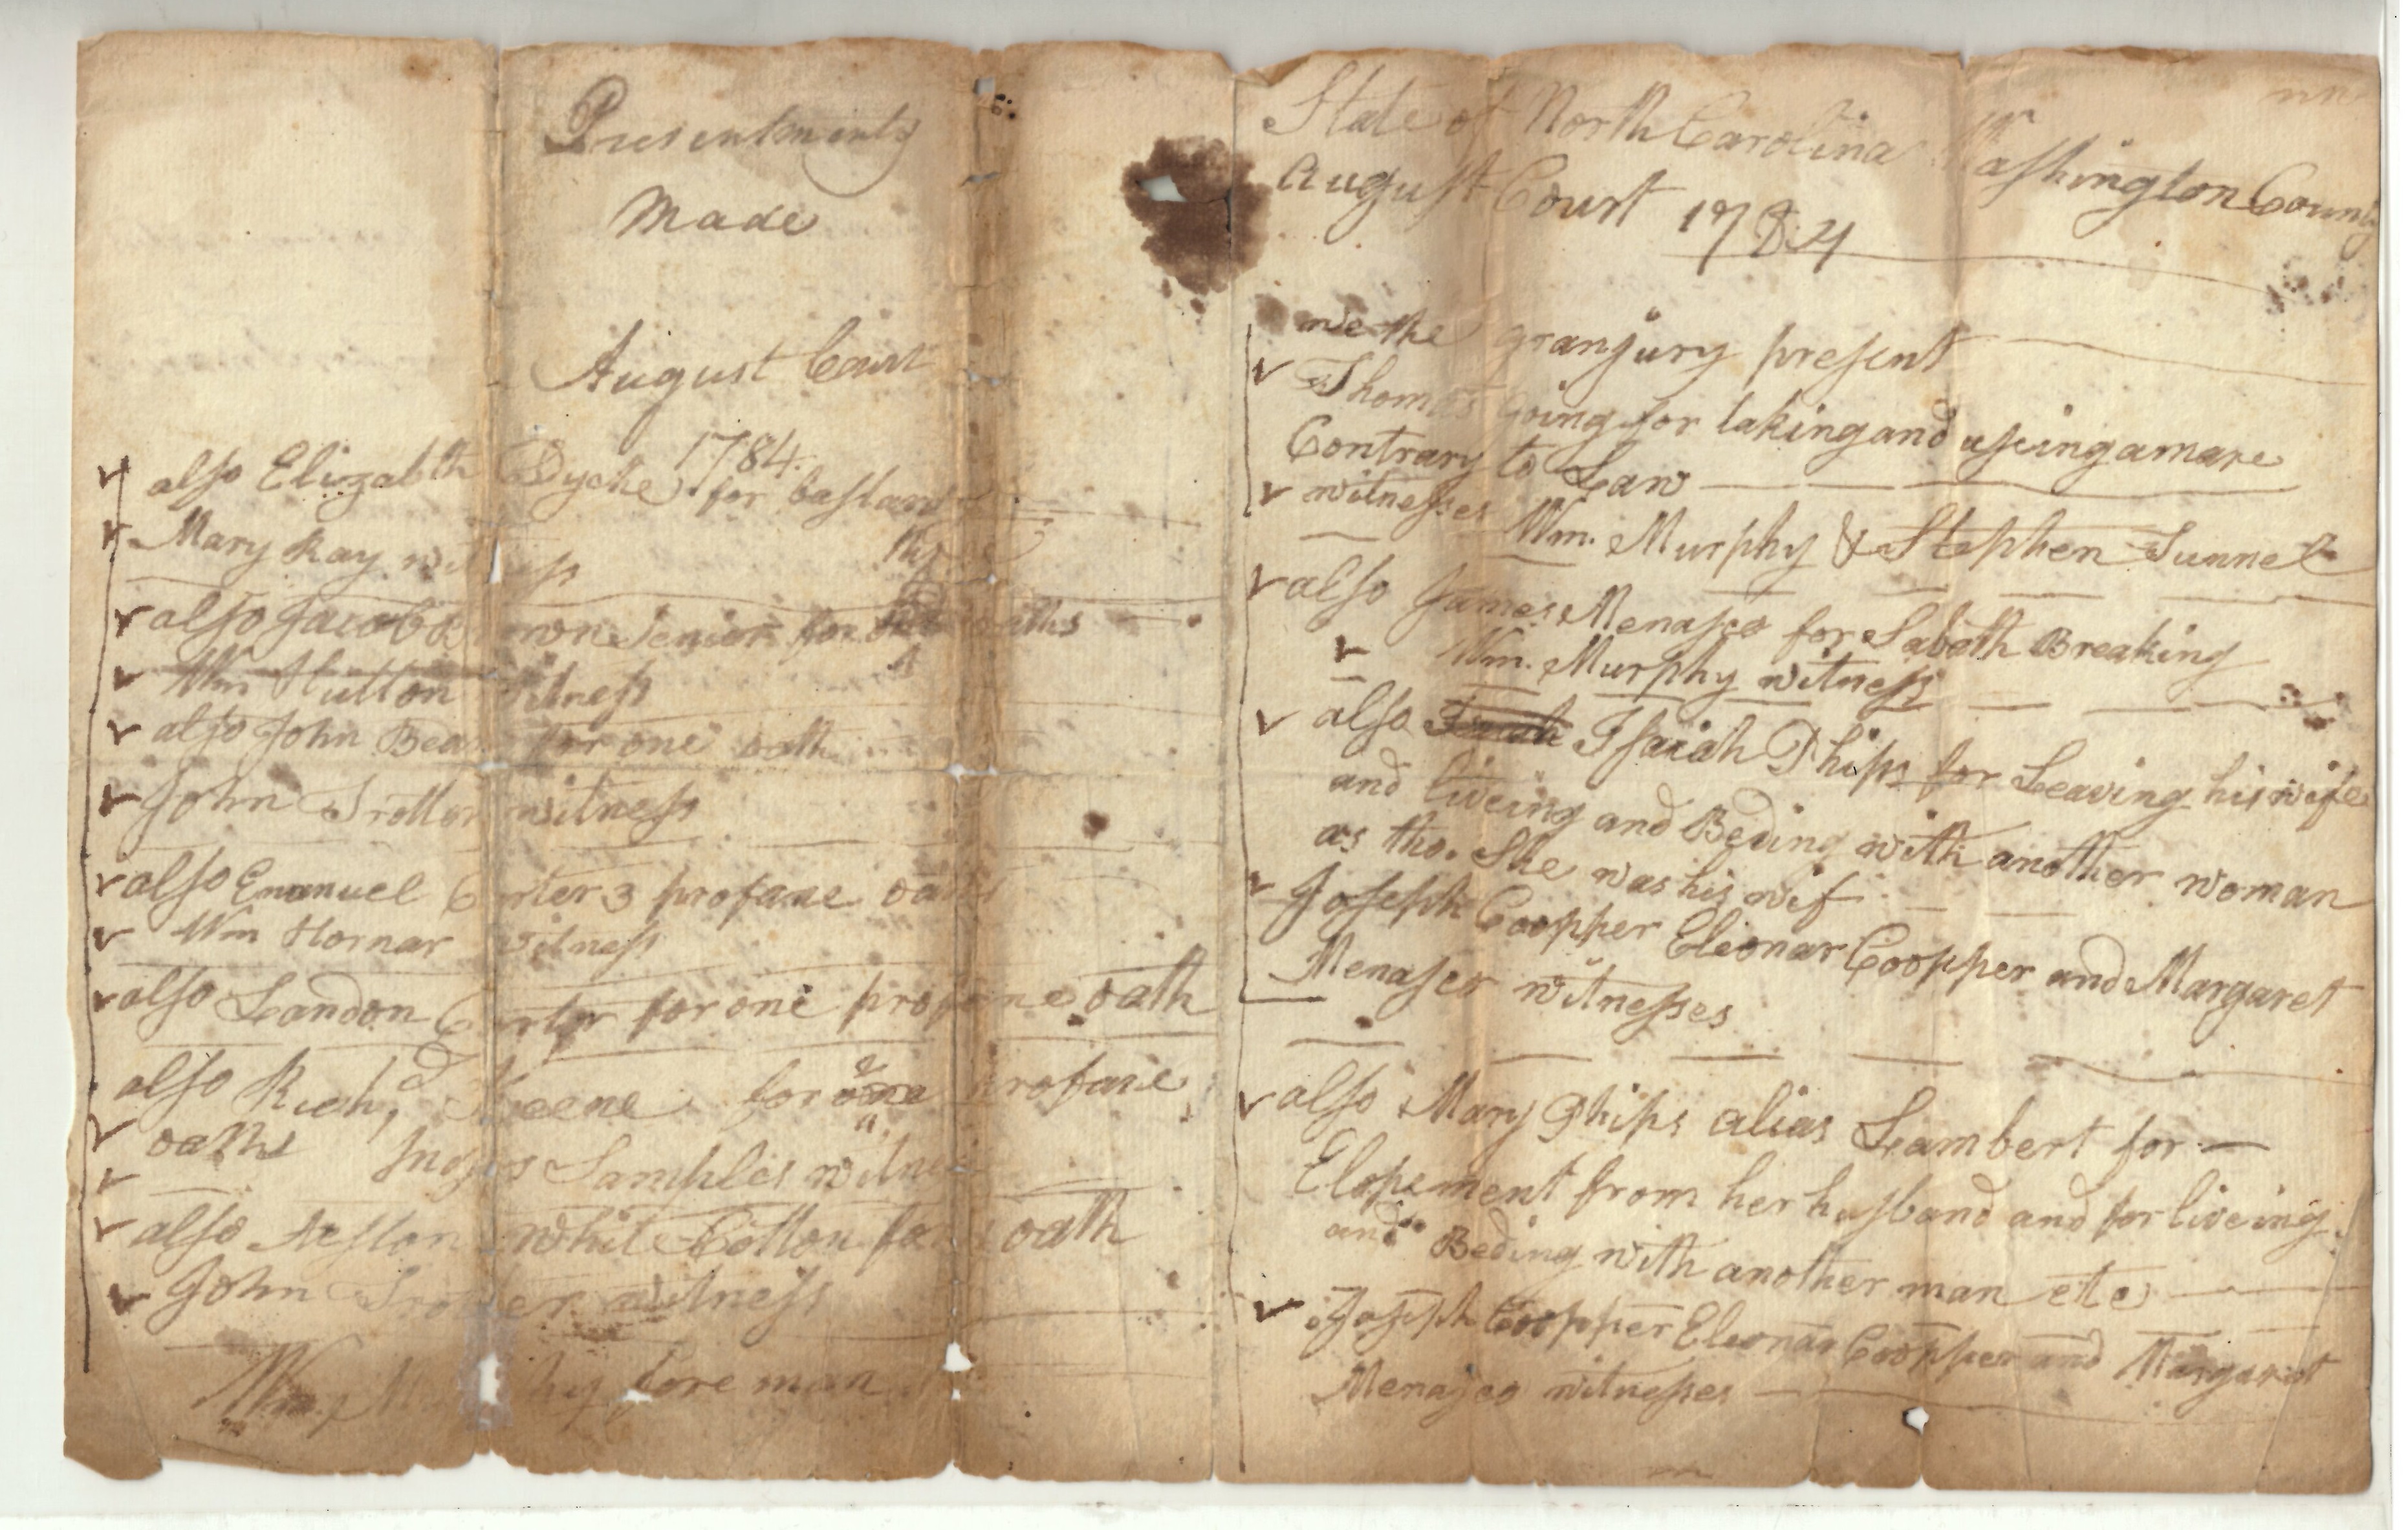 State of North Carolina Washington County
August Court 1784
we the granjury present
Thomas Going for takeing and useing a mare
Contrary to Law
witnesses Wm. Murphy & Stephen Tunnel
also James Menasco for Sabath Breaking
Wm. Murphy witness
also Isaiah Phips for Leaving his wife
and liveing and Beding with another woman
as tho. She was his wif
Joseph Coopper Eleonar Coopper and Margaret
Menasco witnesses
also Mary Phips alias Lambert for
Elopement from her husband and for liveing
and Beding with another man etc
Joseph Coopper Eleonar Coopper and Margaret
Menasco witnesses
Presentments
Made
August Court
1784.
also Elizabth Dyche for bastard
Mary Ray witness
also Jacob Brown Senior for oaths
Wm Hutton witness
also John Bean for one oath
John Trotter witness
also Emanuel Carter 3 profane oaths
Wm Hornar witness
also Landon Carter for one profane oath
also Richd, Keene for 2 profane
oaths Samples witness
also white Cotton for oath
John Trotter witness
Wm. Murphy fore man